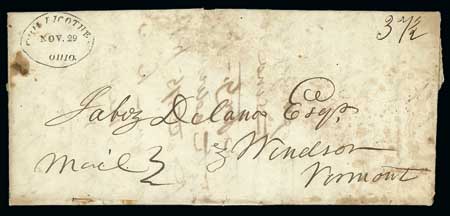 CHILLICOTHE
NOV. 29
OHIO.
37½
Jabez Delano Esqr.
Mail Windsor
Vermont